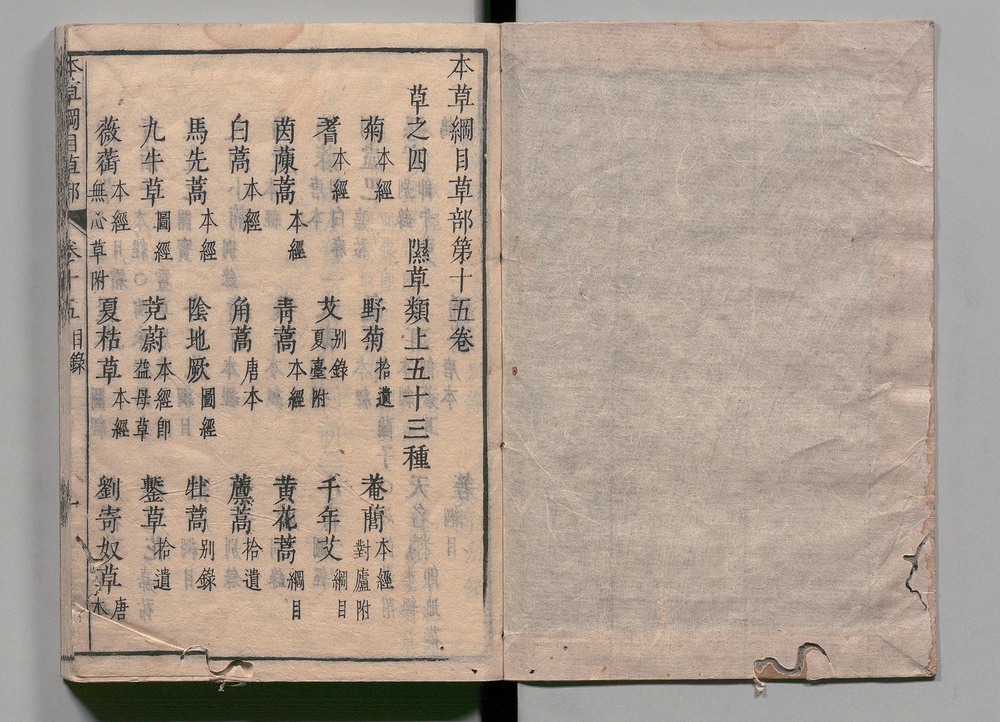 本草綱目草部第十五卷
草之四 隰草類上五十三種
菊本經 野菊拾遺 菴䕡本經對廬附
蓍本經 艾別錄夏臺附 千年艾綱目
茵蔯蒿本經 青蒿本經 黃花蒿綱目
白蒿本經 角蒿唐本 藨蒿拾遺
馬先蒿本經 陰地厥圖經 牡蒿别錄
九牛草圖經 茺蔚本經即益母草 鏨草拾遺
薇蕮本經無心草附 夏枯草本經 劉寄奴草唐本
本草綱目草部 卷十五目錄 一